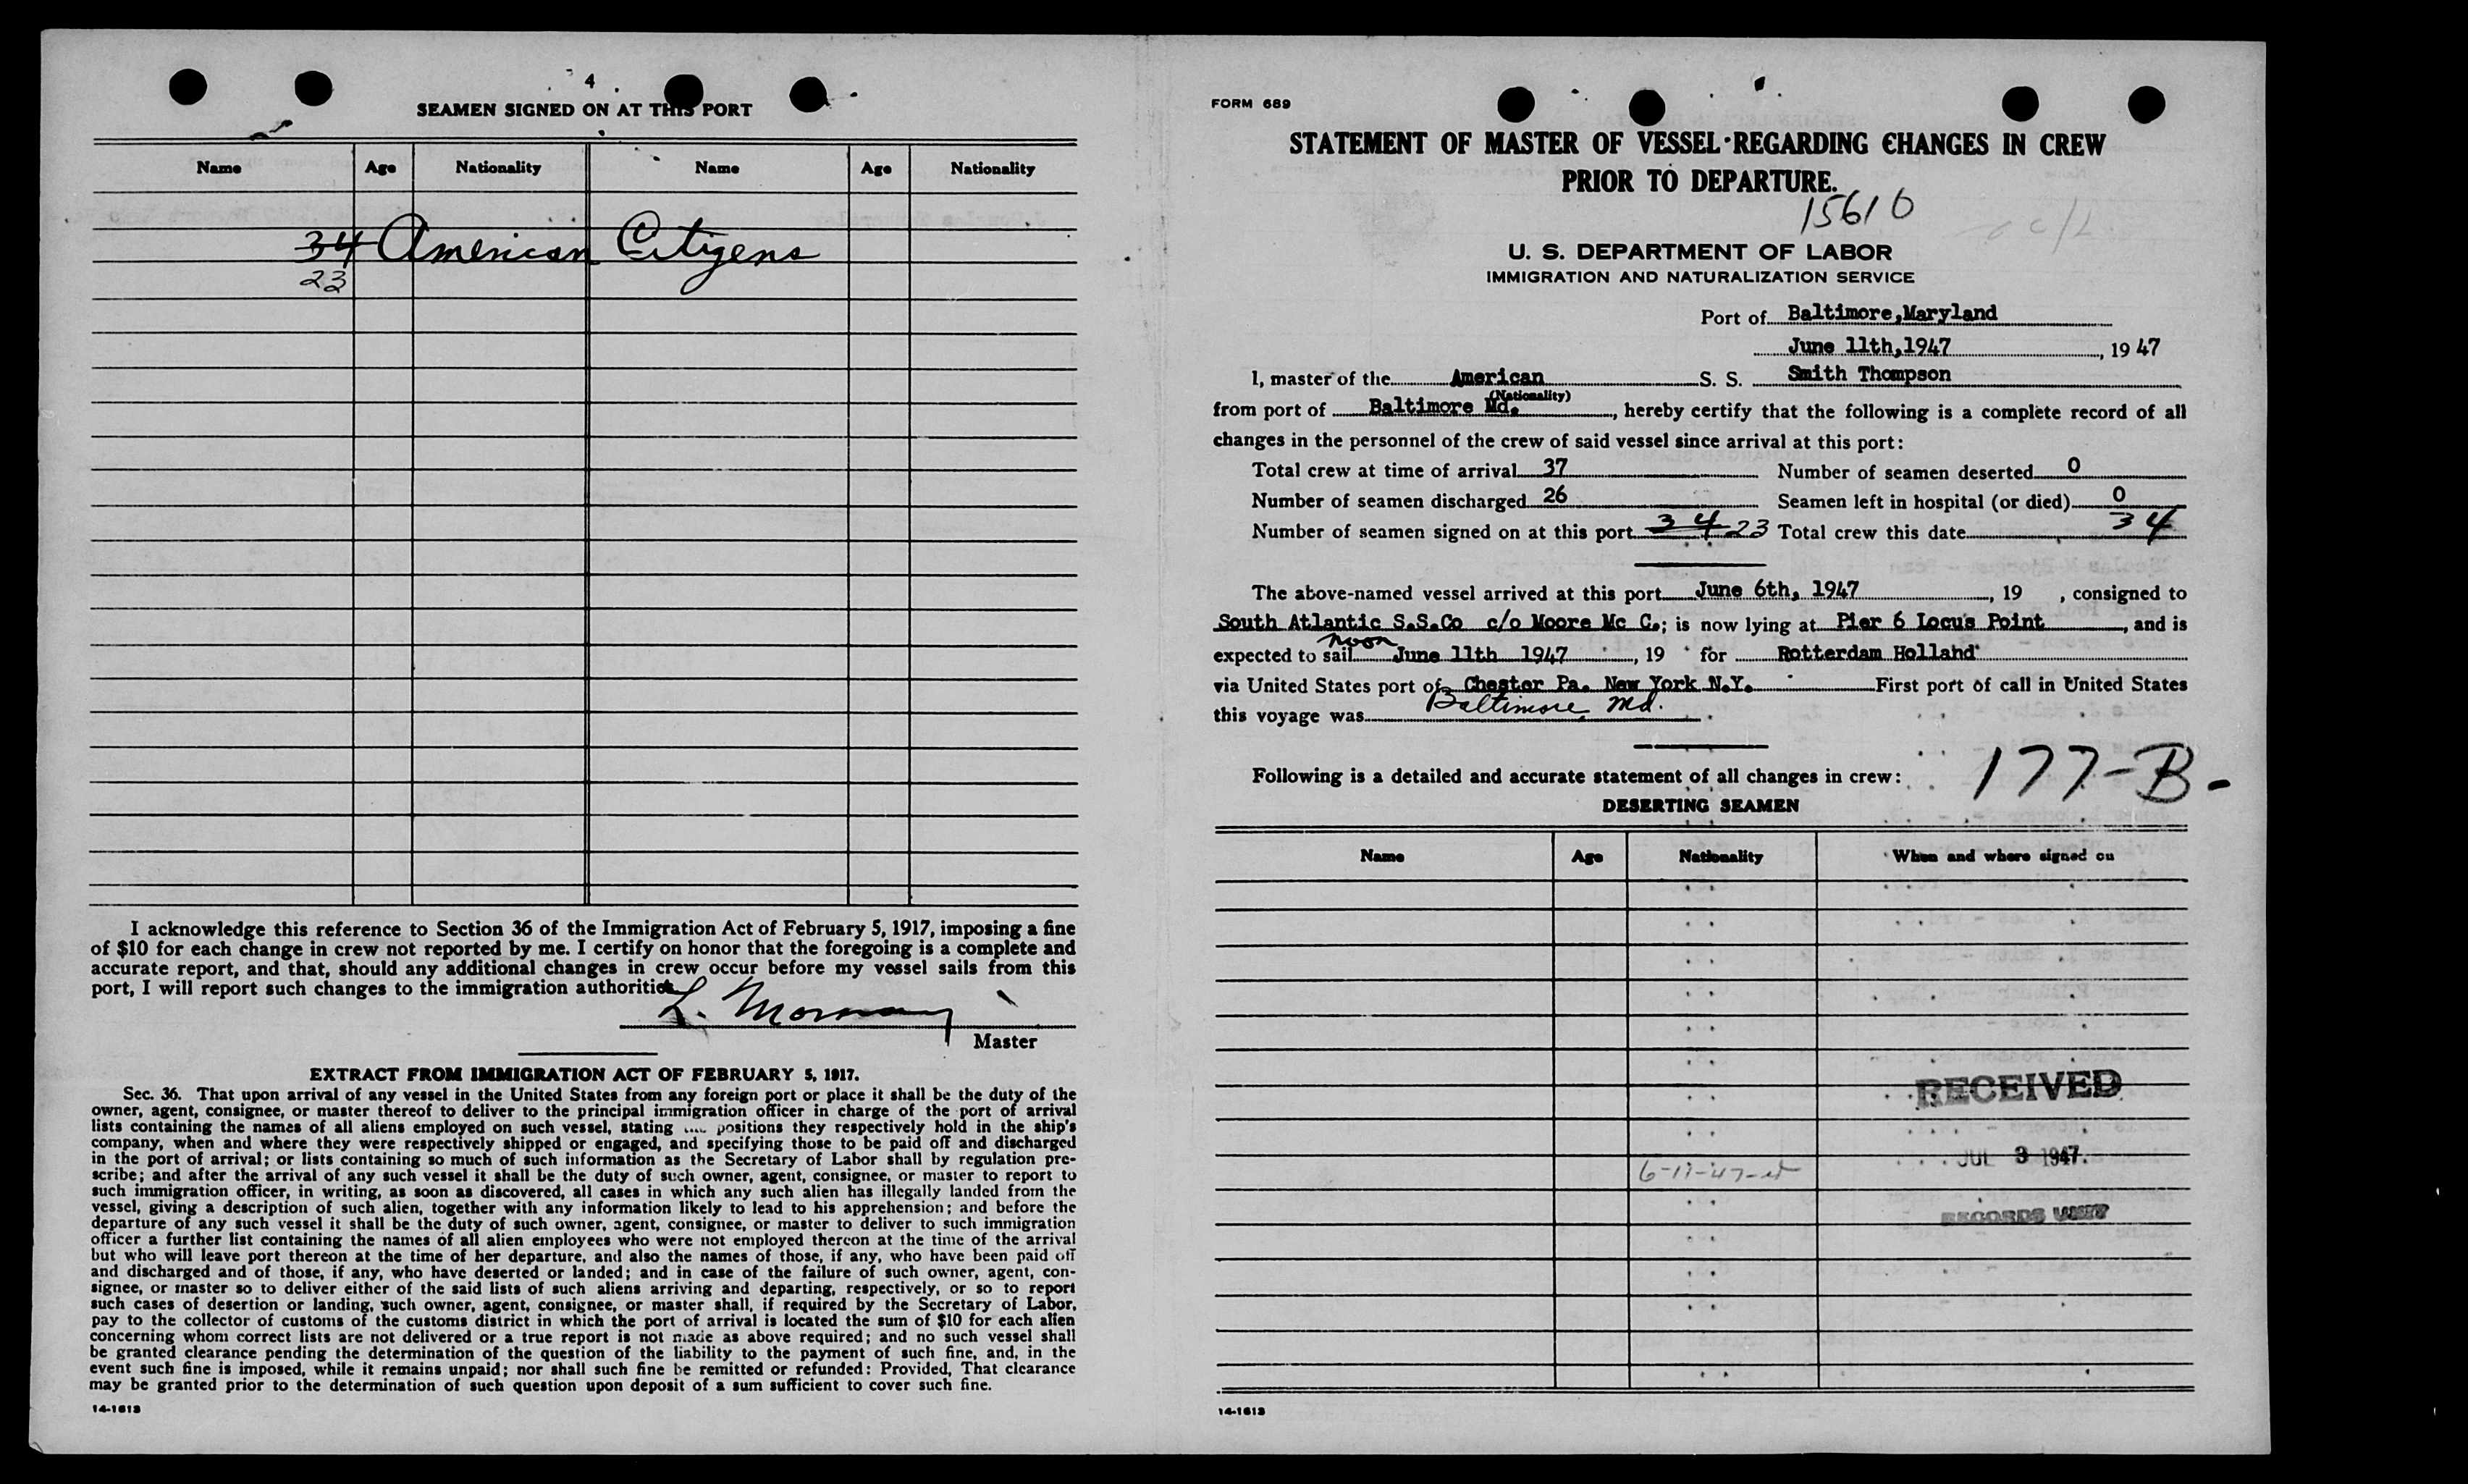 4
SEAMEN SIGNED ON AT THIS PORT
Name Age Nationality Name Age Nationality
34 American Citizens
23
I acknowledge this reference to Section 36 of the Immigration Act of February 5, 1917, imposing a fine
of $10 for each change in crew not reported by me. I certify on honor that the foregoing is a complete and
accurate report, and that, should any additional changes in crew occur before my vessel sails from this
port, I will report such changes to the immigration authorities.
L.
Master
EXTRACT FROM IMMIGRATION ACT OF FEBRUARY 5, 1917.
Sec. 36. That upon arrival of any vessel in the United States from any foreign port or place it shall be the duty of the
owner, agent, consignee, or master thereof to deliver to the principal immigration officer in charge of the port of arrival
lists containing the names of all aliens employed on such vessel, stating the positions they respectively hold in the ship's
company, when and where they were respectively shipped or engaged, and specifying those to be paid off and discharged
in the port of arrival; or lists containing so much of such information as the Secretary of Labor shall by regulation pre-
scribe; and after the arrival of any such vessel it shall be the duty of such owner, agent, consignee, or master to report to
such immigration officer, in writing, as soon as discovered, all cases in which any such alien has illegally landed from the
vessel, giving a description of such alien, together with any information likely to lead to his apprehension; and before the
departure of any such vessel it shall be the duty of such owner, agent, consignee, or master to deliver to such immigration
officer a further list containing the names of all alien employees who were not employed thereon at the time of the arrival
but who will leave port thereon at the time of her departure, and also the names of those, if any, who have been paid off
and discharged and of those, if any, who have deserted or landed; and in case of the failure of such owner, agent, con-
signee, or master so to deliver either of the said lists of such aliens arriving and departing, respectively, or so to report
such cases of desertion or landing, such owner, agent, consignee, or master shall, if required by the Secretary of Labor,
pay to the collector of customs of the customs district in which the port of arrival is located the sum of $10 for each alien
concerning whom correct lists are not delivered or a true report is not made as above required; and no such vessel shall
be granted clearance pending the determination of the question of the liability to the payment of such fine, and, in the
event such fine is imposed, while it remains unpaid; nor shall such fine be remitted or refunded: Provided, That clearance
may be granted prior to the determination of such question upon deposit of a sum sufficient to cover such fine.
14-1613
FORM 689
STATEMENT OF MASTER OF VESSEL REGARDING CHANGES IN CREW
PRIOR TO DEPARTURE.
15616
U. S. DEPARTMENT OF LABOR
IMMIGRATION AND NATURALIZATION SERVICE
Port of Baltimore,Maryland
June 11th,1947, 19 47
I, master of the American S. S. Smith Thompson
(Nationality)
from port of Baltimore Md., hereby certify that the following is a complete record of all
changes in the personnel of the crew of said vessel since arrival at this port:
Total crew at time of arrival 37 Number of seamen deserted 0
Number of seamen discharged 26 Seamen left in hospital (or died) 0
Number of seamen signed on at this port 34 23 Total crew this date 34
The above-named vessel arrived at this port June 6th, 1947, 19 , consigned to
South Atlantic S.S.Co c/o Moore Mc C.; is now lying at Pier 6 Locus Point, and is
noon
expected to sail June 11th 1947, 19 for Rotterdam Holland
via United States port of Chester Pa. New York N.Y. First port of call in United States
this voyage was Baltimore, Md.
Following is a detailed and accurate statement of all changes in crew: 177-B-
DESERTING SEAMEN
Name Age Nationality When and where signed on
RECEIVED
JUL 3 1947
6-11-47
RECORDS UNIT
14-1613